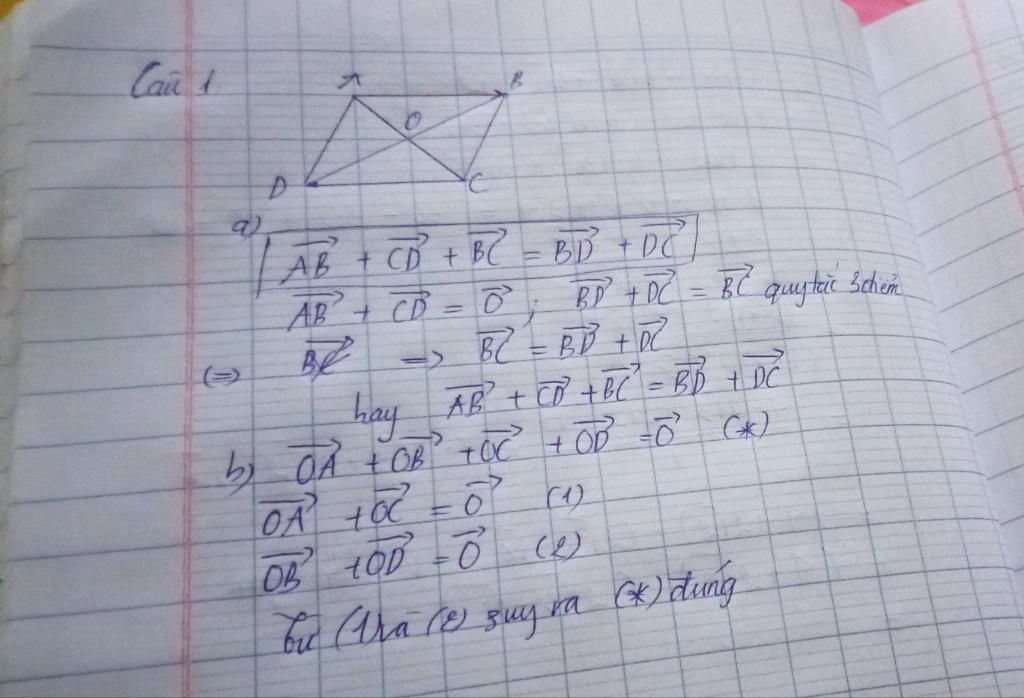 Câu 1
A B
O
D C
a)
$\overrightarrow{AB} + \overrightarrow{CD} + \overrightarrow{BC} = \overrightarrow{BD} + \overrightarrow{DC}$
$\overrightarrow{AB} + \overrightarrow{CD} = \overrightarrow{O}$ ; $\overrightarrow{BD} + \overrightarrow{DC} = \overrightarrow{BC}$ quy tắc 3 điểm
(=>) $\overrightarrow{BC}$ => $\overrightarrow{BC} = \overrightarrow{BD} + \overrightarrow{DC}$
hay $\overrightarrow{AB} + \overrightarrow{CD} + \overrightarrow{BC} = \overrightarrow{BD} + \overrightarrow{DC}$
b) $\overrightarrow{OA} + \overrightarrow{OB} + \overrightarrow{OC} + \overrightarrow{OD} = \overrightarrow{O}$ (*)
$\overrightarrow{OA} + \overrightarrow{OC} = \overrightarrow{O}$ (1)
$\overrightarrow{OB} + \overrightarrow{OD} = \overrightarrow{O}$ (2)
Từ (1) và (2) suy ra (*) đúng